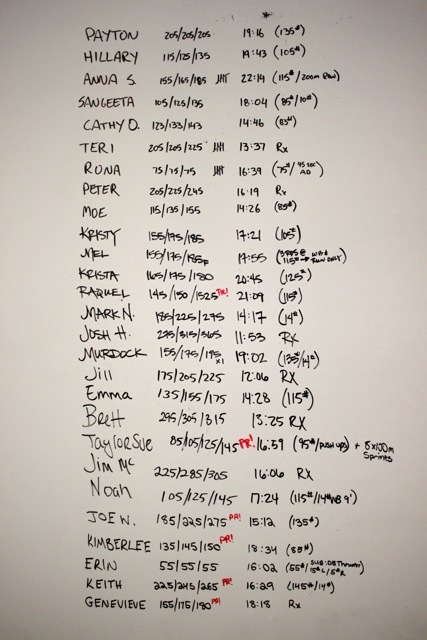 PAYTON 205/205/205 19:16 (135#)
HILLARY 115/125/135 14:43 (105#)
ANNA S. 155/165/185 22:14 (115#/200m Row)
SANGEETA 105/125/135 18:04 (85#/10#)
CATHY O. 123/133/143 14:46 (83#)
TERI 205/205/225 13:37 Rx
RONA 75/75/75 16:39 (75#/45 sec AD)
PETER 205/225/245 16:19 Rx
MOE 115/135/155 14:26 (85#)
KRISTY 155/175/185 17:21 (105#)
MEL 155/175/185F 17:55
KRISTA 165/175/180 20:45 (125#)
RAQUEL 145/150/152.5 PR! 21:09 (115#)
MARK N. 225/275 14:17 (14#)
JOSH H. 275/315/365 11:53 Rx
MURDOCK 155/175/195 x1 19:02 (135#/14#)
Jill 175/205/225 12:06 RX
Emma 135/155/175 14:28 (115#)
Brett 295/305/315 13:25 RX
TaylorSue 85/105/125/145 PR! 16:59 (95#/push ups) + 8x100m Sprints
Jim Mc 225/285/305 16:06 RX
Noah 105/125/145 17:24 (115#/14#WB 9')
JOE W. 185/225/275 PR! 15:12 (135#)
KIMBERLEE 135/145/150 PR! 18:34 (85#)
ERIN 55/55/55 16:02 (55#/SUB: DB Thruster 15# L/5# R)
KEITH 225/245/265 PR! 16:29 (145#/14#)
GENEVIEVE 155/175/190 PR! 18:18 Rx